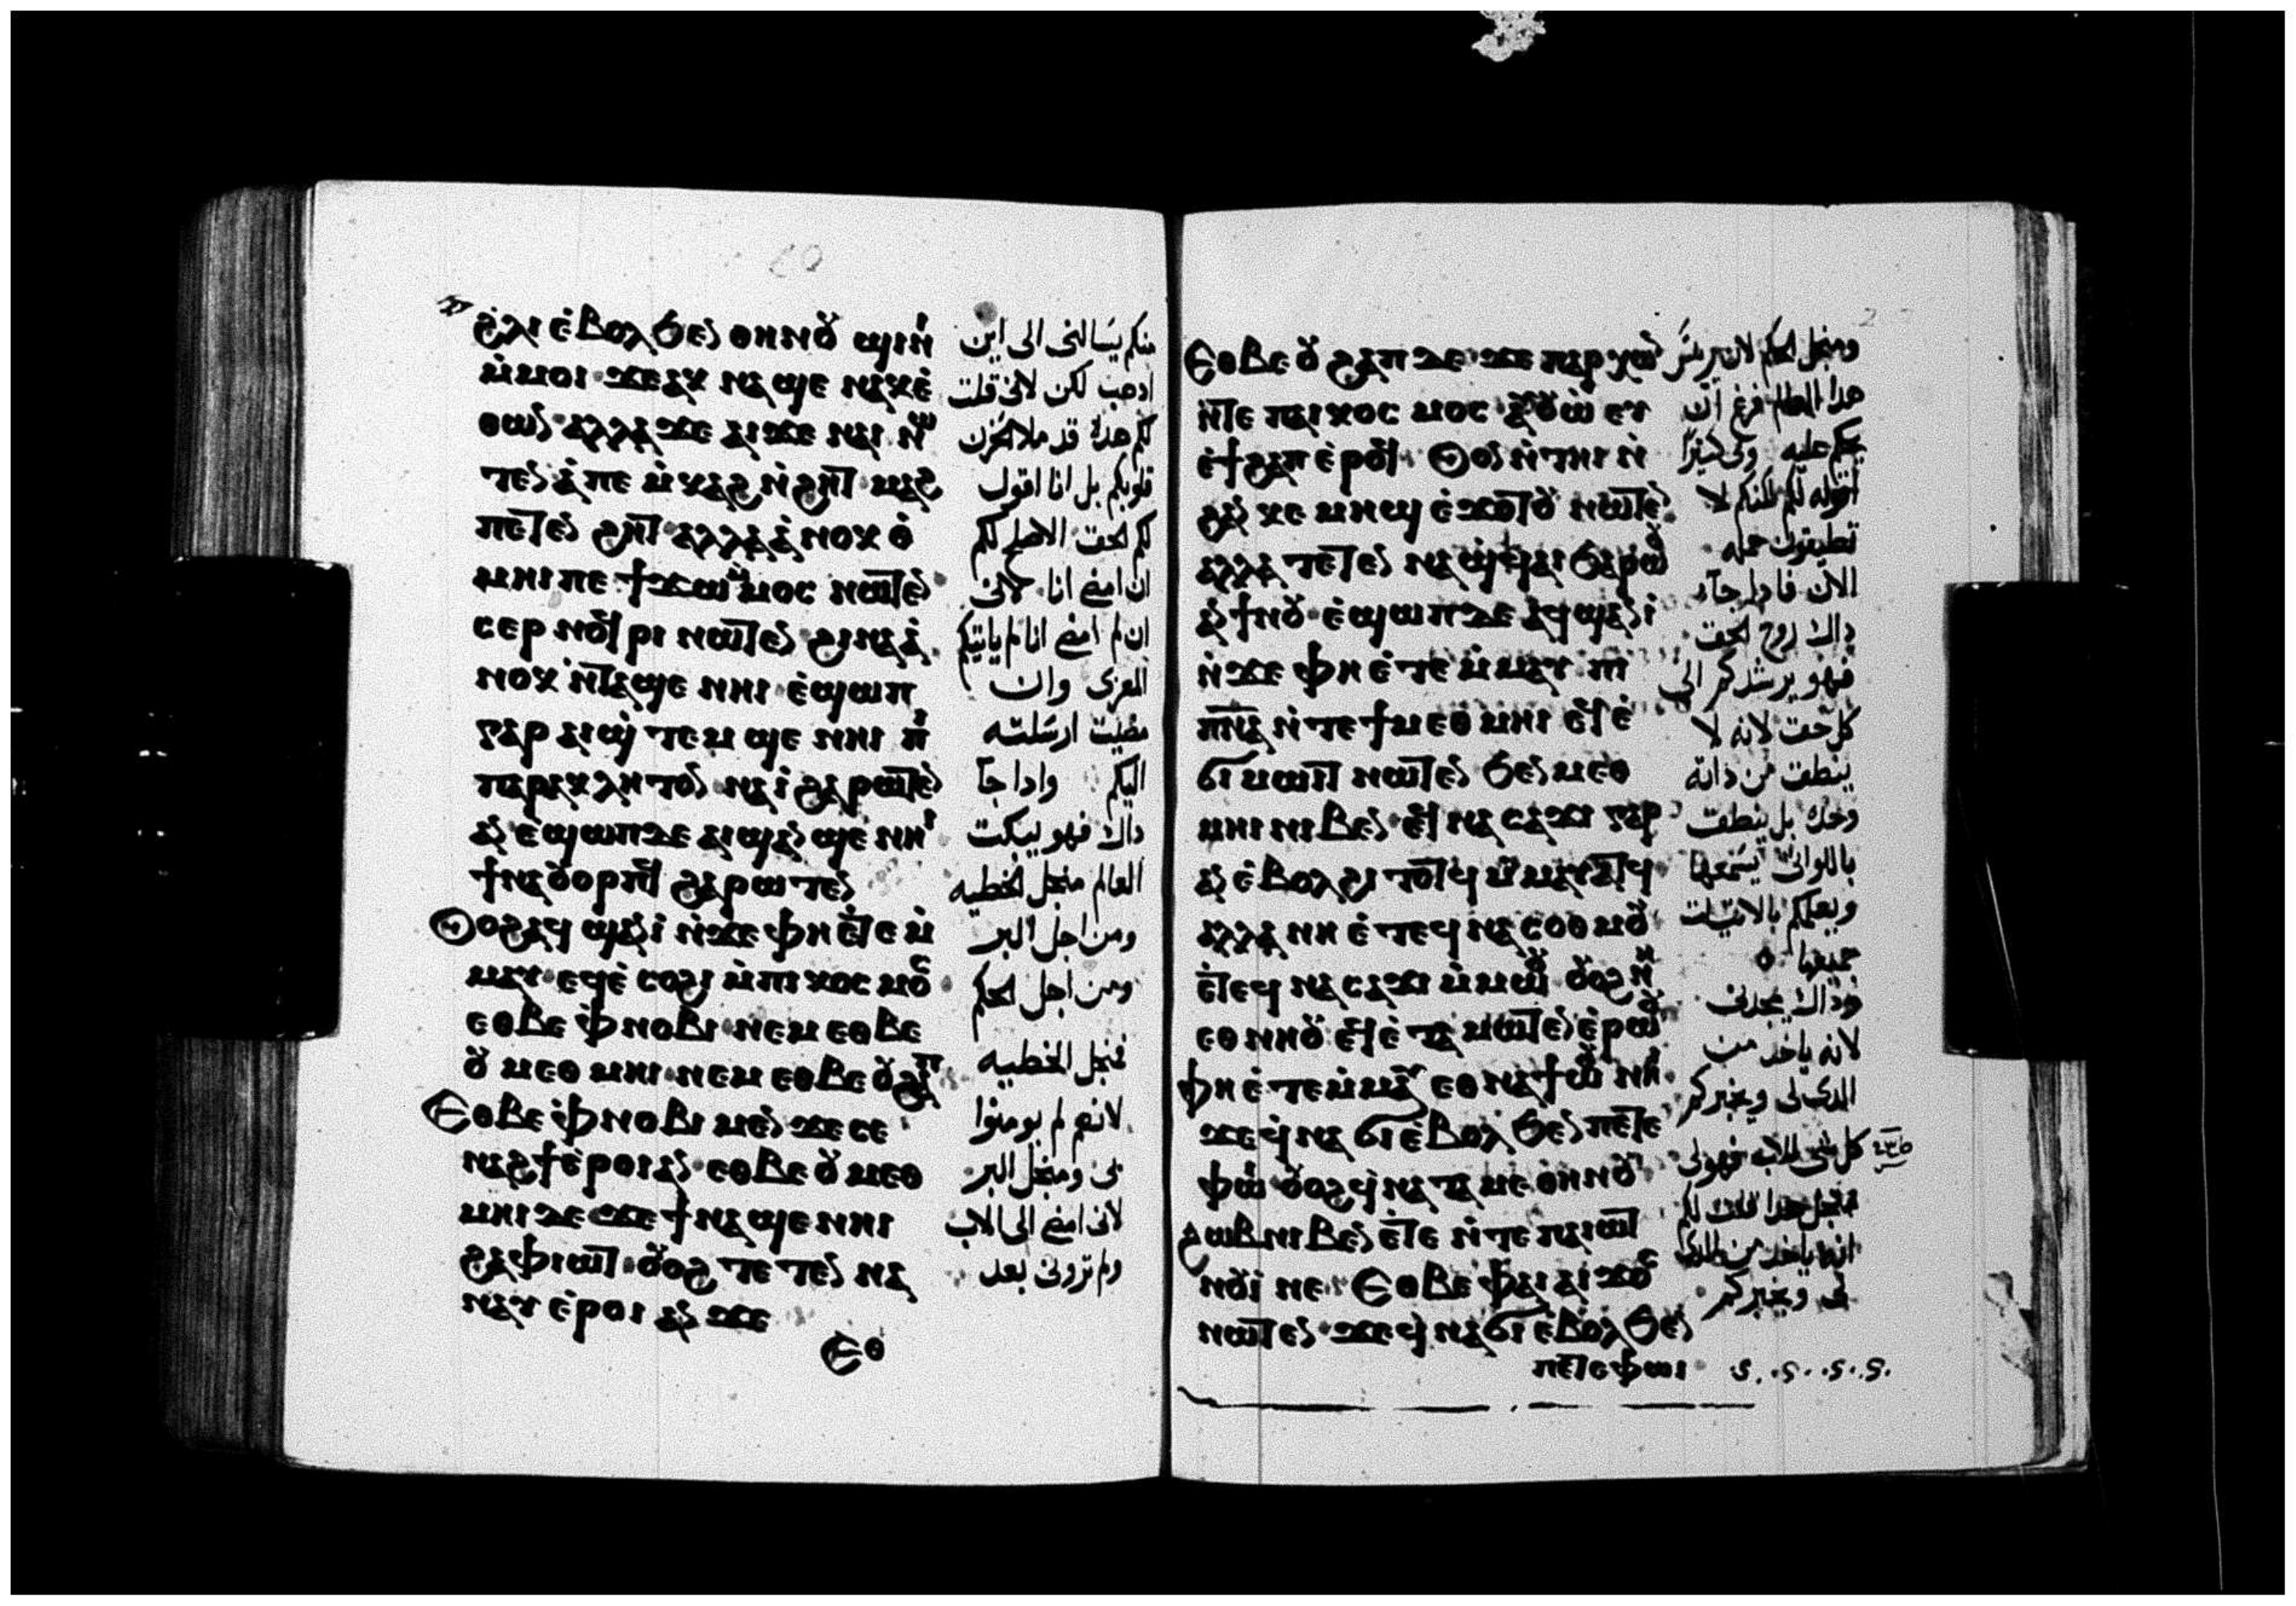 ϩⲗⲓ ⲉ̀ⲃⲟⲗ ϧⲉⲛ ⲑⲏⲛⲟⲩ ϣⲓⲛⲓ
ⲙ̀ⲙⲟⲓ ϫⲉ ⲁⲕ ⲛⲁϣⲉ ⲛⲁⲕ ⲉ̀
ⲑⲱⲛ ⲁⲗⲗⲁ ϫⲉ ⲁⲓϫⲉ ⲛⲁⲓ ⲛⲱ
ⲧⲉⲛ ⲁ̀ ⲡⲉⲙ̀ⲕⲁϩ ⲛ̀ϩⲏⲧ ⲙⲁϩ
ⲡⲉⲧⲉⲛ ϩⲏⲧ ⲁⲗⲗⲁ ⲁ̀ⲛⲟⲕ ⲑ̀
ⲙⲏⲓ ⲡⲉ ϯϫⲱ ⲙ̀ⲙⲟⲥ ⲛⲱⲧⲉⲛ
ⲥⲉⲣⲛⲟϥⲣⲓ ⲛⲱⲧⲉⲛ ϩⲓⲛⲁ ⲁ̀
ⲛⲟⲕ ⲛ̀ⲧⲁϣⲉ ⲛⲏⲓ ⲉ̀ϣⲱⲡ
ⲅⲁⲣ ⲁⲓϣ̀ⲧⲉⲙ ϣⲉ ⲛⲏⲓ ⲡⲓ
ⲡⲁⲣⲁⲕⲗⲏⲧⲟⲛ ⲛⲁⲓ̀ ϩⲁⲣⲱⲧⲉⲛ
ⲁⲛ ⲉ̀ϣⲱⲡ ⲇⲉ ⲁⲓϣⲁⲛ ϣⲉ ⲛⲏⲓ
ϯⲛⲁⲟⲩⲟⲣⲡϥ ϩⲁⲣⲱⲧⲉⲛ
Ⲟⲩⲟϩ ⲁϥϣⲁⲛⲓ̀ ⲛ̀ϫⲉ ⲫⲏ ⲉ̀ⲧⲉ ⲙ̀
ⲙⲁⲩ ⲉϥⲉ̀ⲥⲟϩⲓ ⲙ̀ⲡⲓⲕⲟⲥⲙⲟⲥ
ⲉⲑⲃⲉ ⲫ̀ⲛⲟⲃⲓ ⲛⲉⲙ ⲉⲑⲃⲉ
ⲟⲩⲙⲉⲑⲙⲏⲓ ⲛⲉⲙ ⲉⲑⲃⲉ ⲟⲩϩⲁⲡ
Ⲉⲑⲃⲉ ⲫ̀ⲛⲟⲃⲓ ⲙⲉⲛ ϫⲉ ⲥⲉ
ⲛⲁϩϯ ⲉ̀ⲣⲟⲓ ⲁⲛ ⲉⲑⲃⲉ ⲟⲩⲙⲉⲑ
ⲙⲏⲓ ⲇⲉ ϫⲉ ϯⲛⲁϣⲉ ⲛⲏⲓ
ϩⲁ ⲫⲓⲱⲧ ⲟⲩⲟϩ ⲧⲉⲧⲉⲛ ⲛⲁ
ⲛⲁⲩ ⲉ̀ⲣⲟⲓ ⲁⲛ ϫⲉ
Ⲉⲑ
منكم يسالنى الى اين
ادهب لكن لانى قلت
لكم هده قد ملا الحزن
قلوبكم بل انا اقول
لكم الحق الاصلح لكم
ان امضى انا لانى
ان لم امضى انا لم ياتيكم
المعزى وان
مضيت ارسلته
اليكم واداجا
داك فهو يبكت
العالم منجل الخطيه
ومن اجل البر
ومن اجل الحكم
فمنجل الخطيه
لانهم لم يومنوا
بى ومنجل البر
لانى امضى الى الاب
ولم ترونى بعد
Ⲉⲑⲃⲉ ⲟⲩϩⲁⲡ ⲇⲉ ϫⲉ ⲡⲁⲣⲭⲱⲛ
ⲛ̀ⲧⲉ ⲡⲁⲓⲕⲟⲥⲙⲟⲥ ⲁⲩⲟⲩⲱ ⲉⲩ
ⲉ̀ϯϩⲁⲡ ⲉ̀ⲣⲟϥ Ⲟⲩⲟⲛ ⲛ̀ⲧⲏⲓ ⲛ̀
ϩⲁⲛⲕⲉⲙⲏϣ ⲉ̀ϫⲟⲧⲟⲩ ⲛⲱⲧⲉⲛ
ⲁⲗⲗⲁ ⲧⲉⲧⲉⲛ ⲛⲁϣϥⲁⲓ ϧⲁⲣⲱⲟⲩ
ⲁⲛ ϯⲛⲟⲩ ⲉ̀ϣⲱⲡ ⲇⲉ ⲁϥϣⲁⲛⲓ̀
ⲛ̀ϫⲉ ⲫⲏ ⲉ̀ⲧⲉ ⲙ̀ⲙⲁⲩ ⲡⲓ
ⲡⲛⲁ ⲛ̀ⲧⲉ ϯⲙⲉⲑⲙⲏⲓ ⲉϥⲉ̀
ϭⲓⲙⲱⲓⲧ ⲛⲱⲧⲉⲛ ϧⲉⲛ ⲙⲉⲑ
ⲙⲏⲓ ⲛⲓⲃⲉⲛ ⲉϥⲛⲁⲥⲁϫⲓ ⲅⲁⲣ
ⲁⲛ ⲉ̀ⲃⲟⲗ ϩⲓⲧⲟⲧϥ ⲙ̀ⲙⲁⲩⲁⲧϥ
ⲁⲗⲗⲁ ⲛⲏ ⲉ̀ⲧⲉϥⲛⲁⲥⲟⲑⲙⲟⲩ
ⲉ̀ⲧⲉϥⲛⲁⲥⲁϫⲓ ⲙ̀ⲙⲱⲟⲩ ⲟⲩⲟϩ ⲛⲏ
ⲉⲑⲛⲏⲟⲩ ⲉϥⲉ̀ⲧⲁⲙⲱⲧⲉⲛ ⲉ̀ⲣⲱⲟⲩ
ⲫⲏ ⲉ̀ⲧⲉⲙ̀ⲙⲁⲩ ⲉⲑⲛⲁϯⲱⲟⲩ ⲛⲏⲓ
ϫⲉ ϥ̀ⲛⲁϭⲓ ⲉ̀ⲃⲟⲗ ϧⲉⲛ ⲡⲉⲧⲉ
ⲫⲱⲓ ⲟⲩⲟϩ ϥ̀ⲛⲁⲧⲁⲙⲉ ⲑⲏⲛⲟⲩ
ϩⲱⲃ ⲛⲓⲃⲉⲛ ⲉ̀ⲧⲉ ⲛ̀ⲧⲉ ⲡⲁⲓⲱⲧ
ⲛⲟⲩⲓ̀ ⲛⲉ Ⲉⲑⲃⲉ ⲫⲁⲓ ⲁⲓϫⲟⲥ
ⲛⲱⲧⲉⲛ ϫⲉ ϥ̀ⲛⲁϭⲓ ⲉ̀ⲃⲟⲗ ϧⲉⲛ
ⲡⲉⲧⲉ ⲫⲱⲓ
ومنجل الحكم لان
هدا العالم فرغ ان
يحكم عليه ولى كثيرا
اقوله لكم لكنكم لا
تطيقون حمله
الان فادا جآء
داك روح الحق
فهو يرشدكم الى
كل حق لانه لا
ينطق من داته
وحده بل ينطق
ويعلمكم بالاتيات
جميعها
وداك يمجدنى
لانه ياخد من
الدى لى ويخبركم
كل شى للاب فهو لى
منجل هدا قلت لكم
انه ياخد من الدى
لى ويخبركم